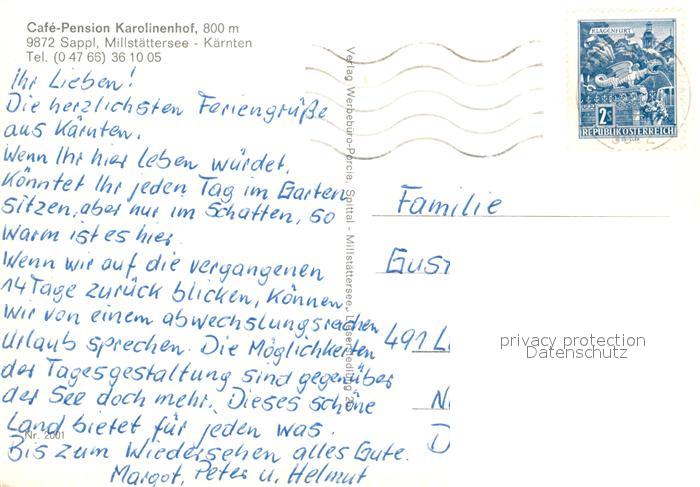 Café-Pension Karolinenhof, 800 m
9872 Sappl, Millstättersee - Kärnten
Tel. (0 47 66) 36 10 05
Ihr Lieben!
Die herzlichsten Feriengrüße
aus Kärnten.
Wenn Ihr hier leben würdet,
könntet Ihr jeden Tag im Garten
sitzen, aber nur im Schatten, so
warm ist es hier.
Wenn wir auf die vergangenen
14 Tage zurück blicken, können
wir von einem abwechslungsreichen
Urlaub sprechen. Die Möglichkeiten
der Tagesgestaltung sind gegenüber
der See doch mehr. Dieses schöne
Land bietet für jeden was.
Bis zum Wiedersehen alles Gute.
Margot, Peter u. Helmut
Nr. 2001
Verlag Werbebüro-Porcia, Spittal - Millstättersee,
KLAGENFURT
2S
REPUBLIK ÖSTERREICH
Familie
Gust
491 L
N
D
privacy protection
Datenschutz